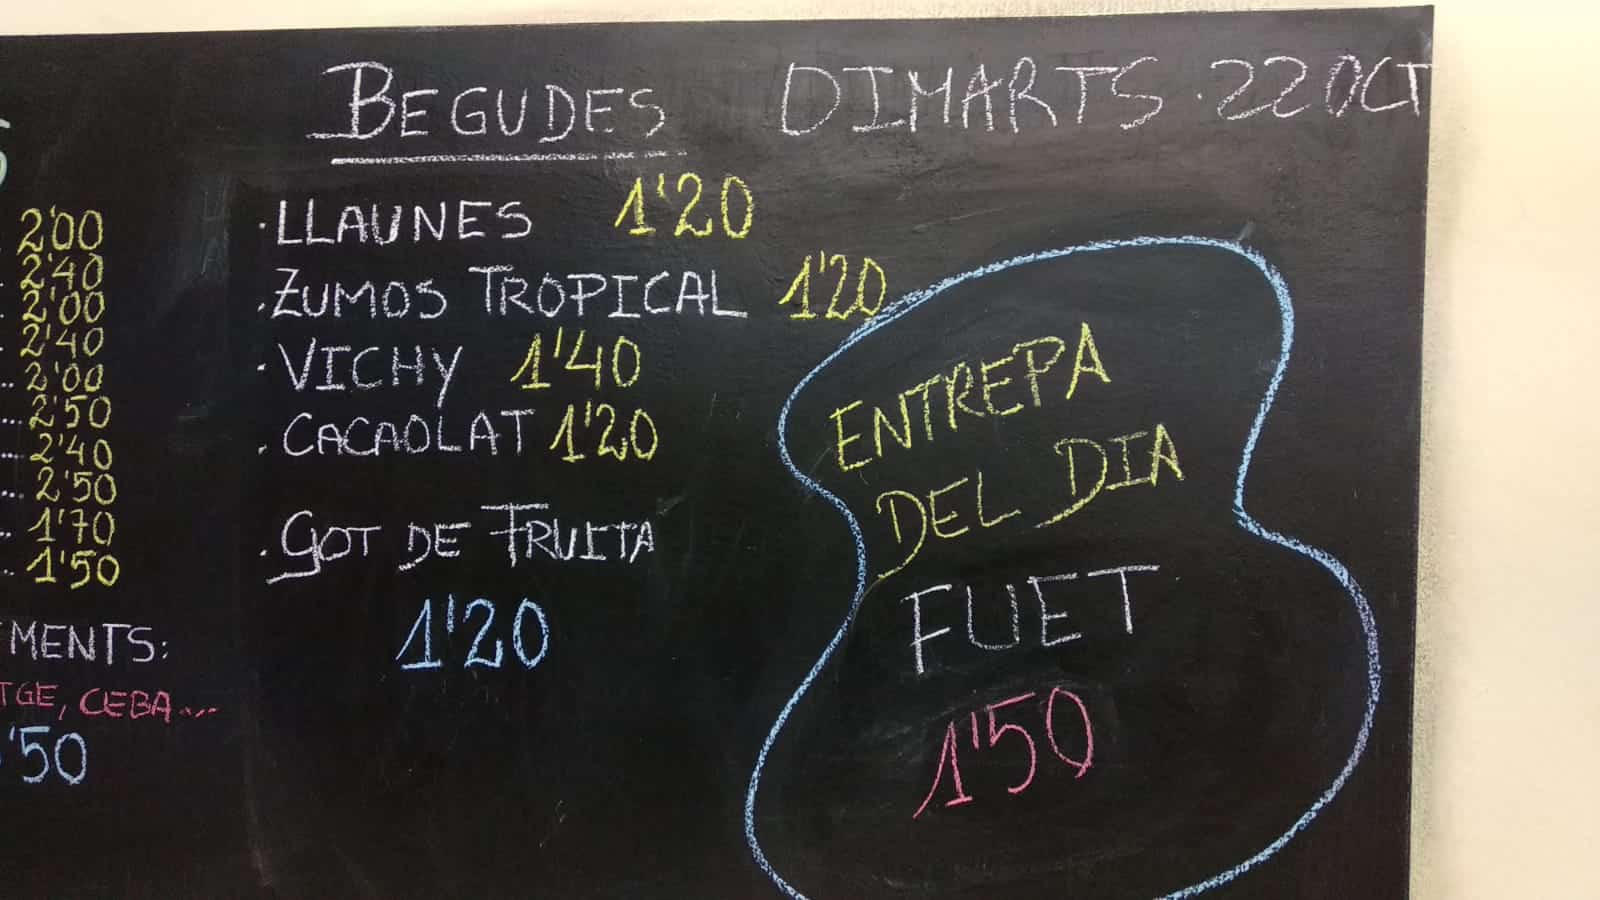 2'00
2'40
2'00
2'40
.. 2'00
... 2'50
.... 2'40
... 2'50
.. 1'70
.. 1'50
MENTS:
TGE, CEBA...
'50
BEGUDES
· LLAUNES 1'20
· ZUMOS TROPICAL 1'20
· VICHY 1'40
· CACAOLAT 1'20
· GOT DE FRUITA
1'20
DIMARTS · 22 OCT
ENTREPA
DEL DIA
FUET
1'50